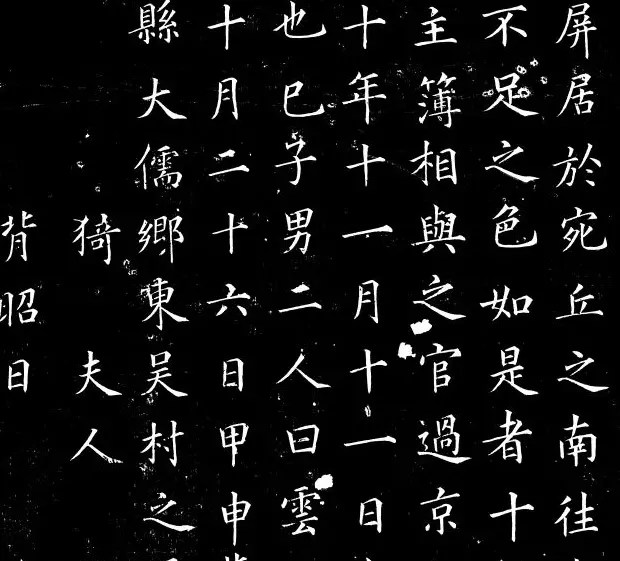 屏居於宛丘之南往
不足之色如是者十
主簿相與之官過京
十年十一月十一日
也巳子男二人曰雲
十月二十六日甲申
縣大儒鄉東吴村之
猗夫人
背昭日